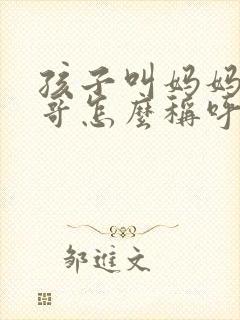 孩子叫妈妈
哥怎麼稱呼
邹進文